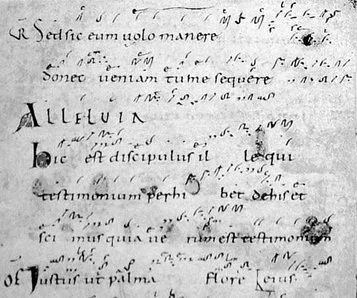 R Sed sic eum uolo manere
donec ueniam tu me sequere
ALLELUIA
hic est discipulus il le qui
testimonium perhi bet de his et
sci mus quia ue rum est testimonium
of Justus ut palma flore